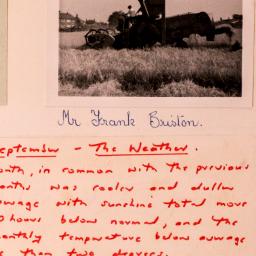 Mr Frank Briston.
eptember - The Weather.
onth, in common with the previous
onths was cooler and duller
average with sunshine total more
0 hours below normal, and the
onthly temperature below average
e than two degrees.